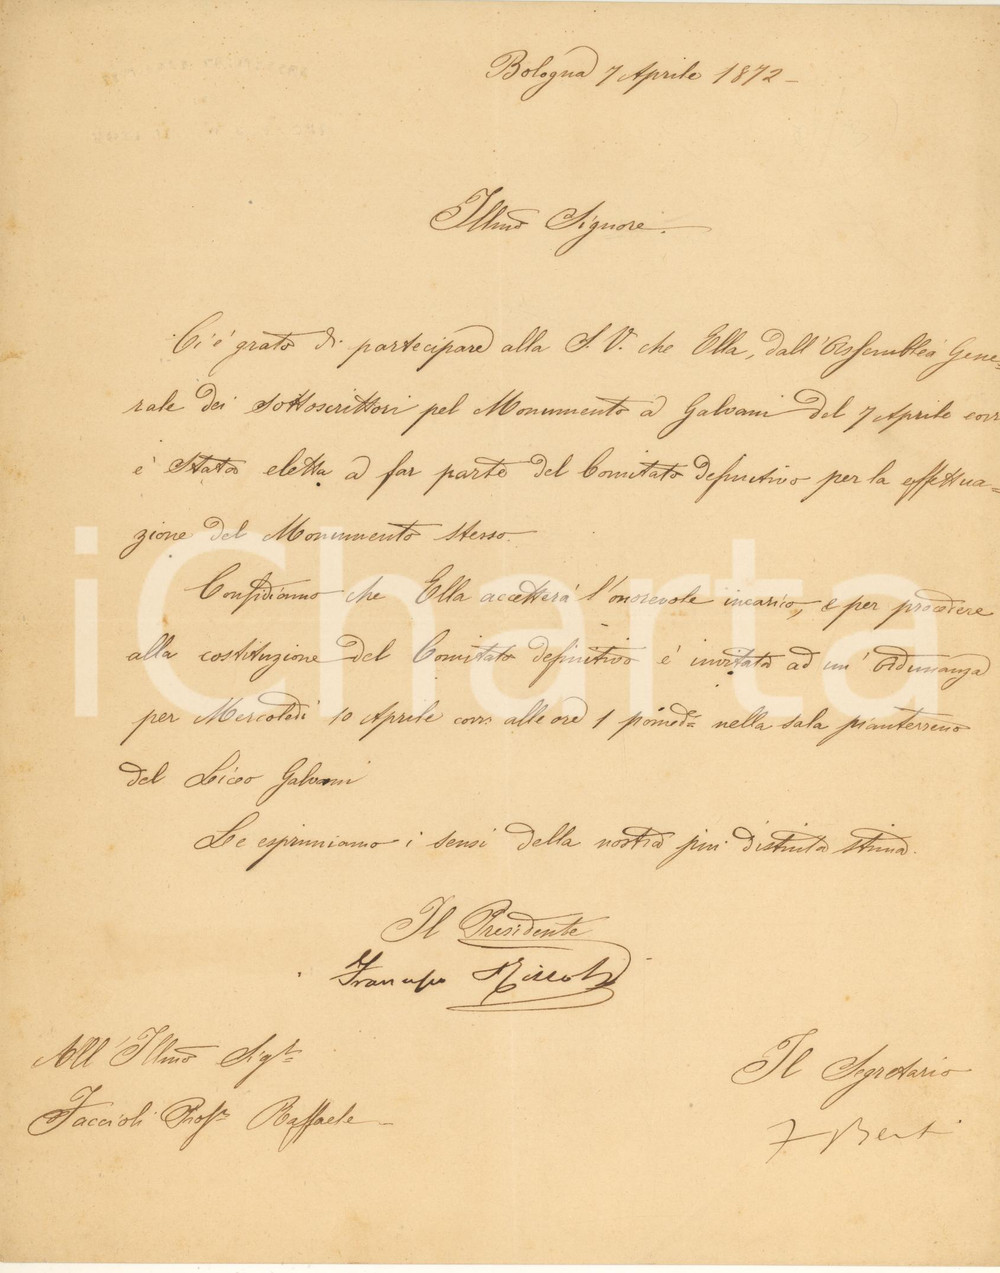 Bologna 7 Aprile 1872 -
Illmo Signore.
Ci è grato di partecipare alla S. V. che Ella, dall'Assemblea Gene=
rale dei sottoscrittori pel Monumento a Galvani del 7 Aprile corr
è stata eletta a far parte del Comitato definitivo per la effettua=
zione del Monumento stesso.
Confidiamo che Ella accetterà l'onorevole incarico, e per procedere
alla costituzione del Comitato definitivo è invitata ad un'Adunanza
per Mercoledì 10 Aprile corr. alle ore 1 pomeda nella sala pianterreno
del Liceo Galvani
Le esprimiamo i sensi della nostra più distinta stima.
Il Presidente
Francesco Rizzoli
All'Illmo Sigr
Faccioli Profr Raffaele -
Il Segretario
F Berti
iCharta